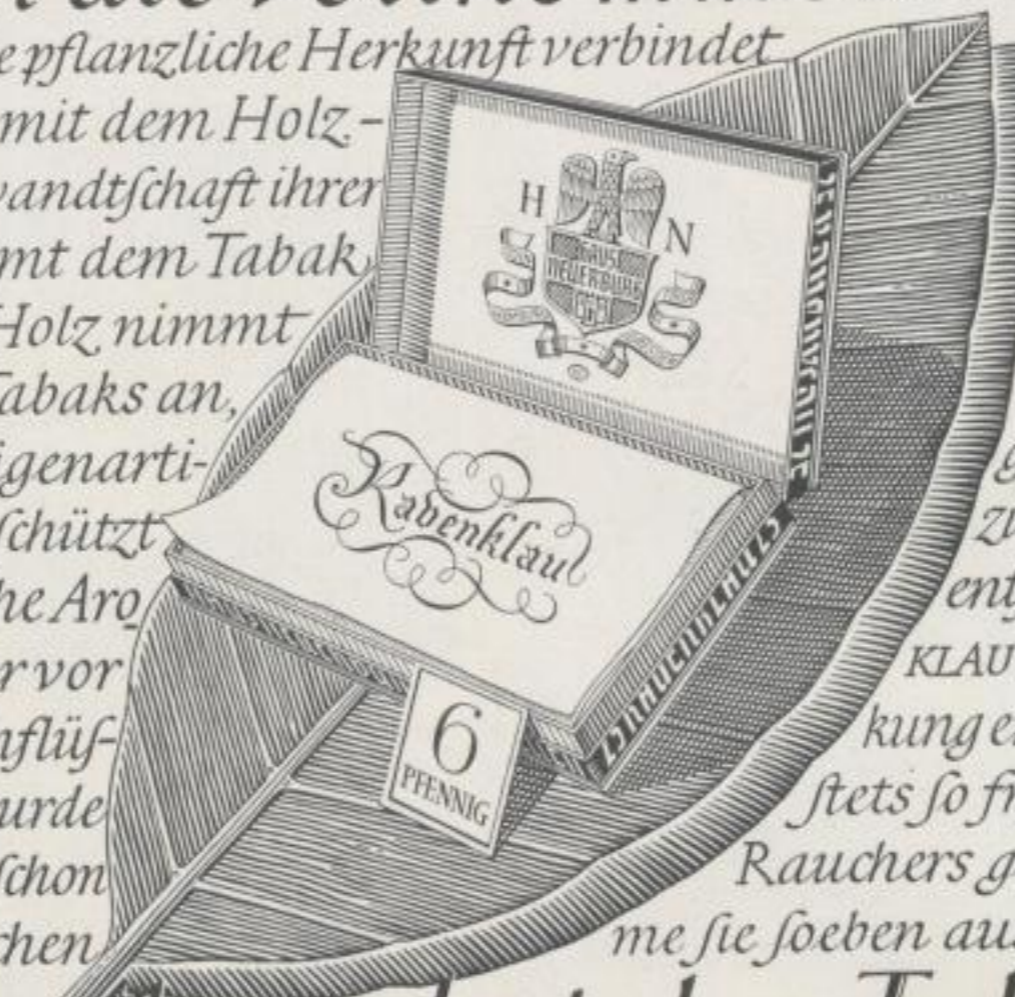 e pflanzliche Herkunft verbindet
mit dem Holz-
wandtſchaft ihrer
mt dem Tabak
Holz nimmt
abaks an,
igenarti-
ſchützt
he Aro
r vor
nflüſ-
urde
ſchon
chen
H N
HAUS
NEUERBURG
Ravenklau
6
PFENNIG
g
zu
ent
KLAU
kung e
ſtets ſo fr
Rauchers g
me ſie ſoeben aus